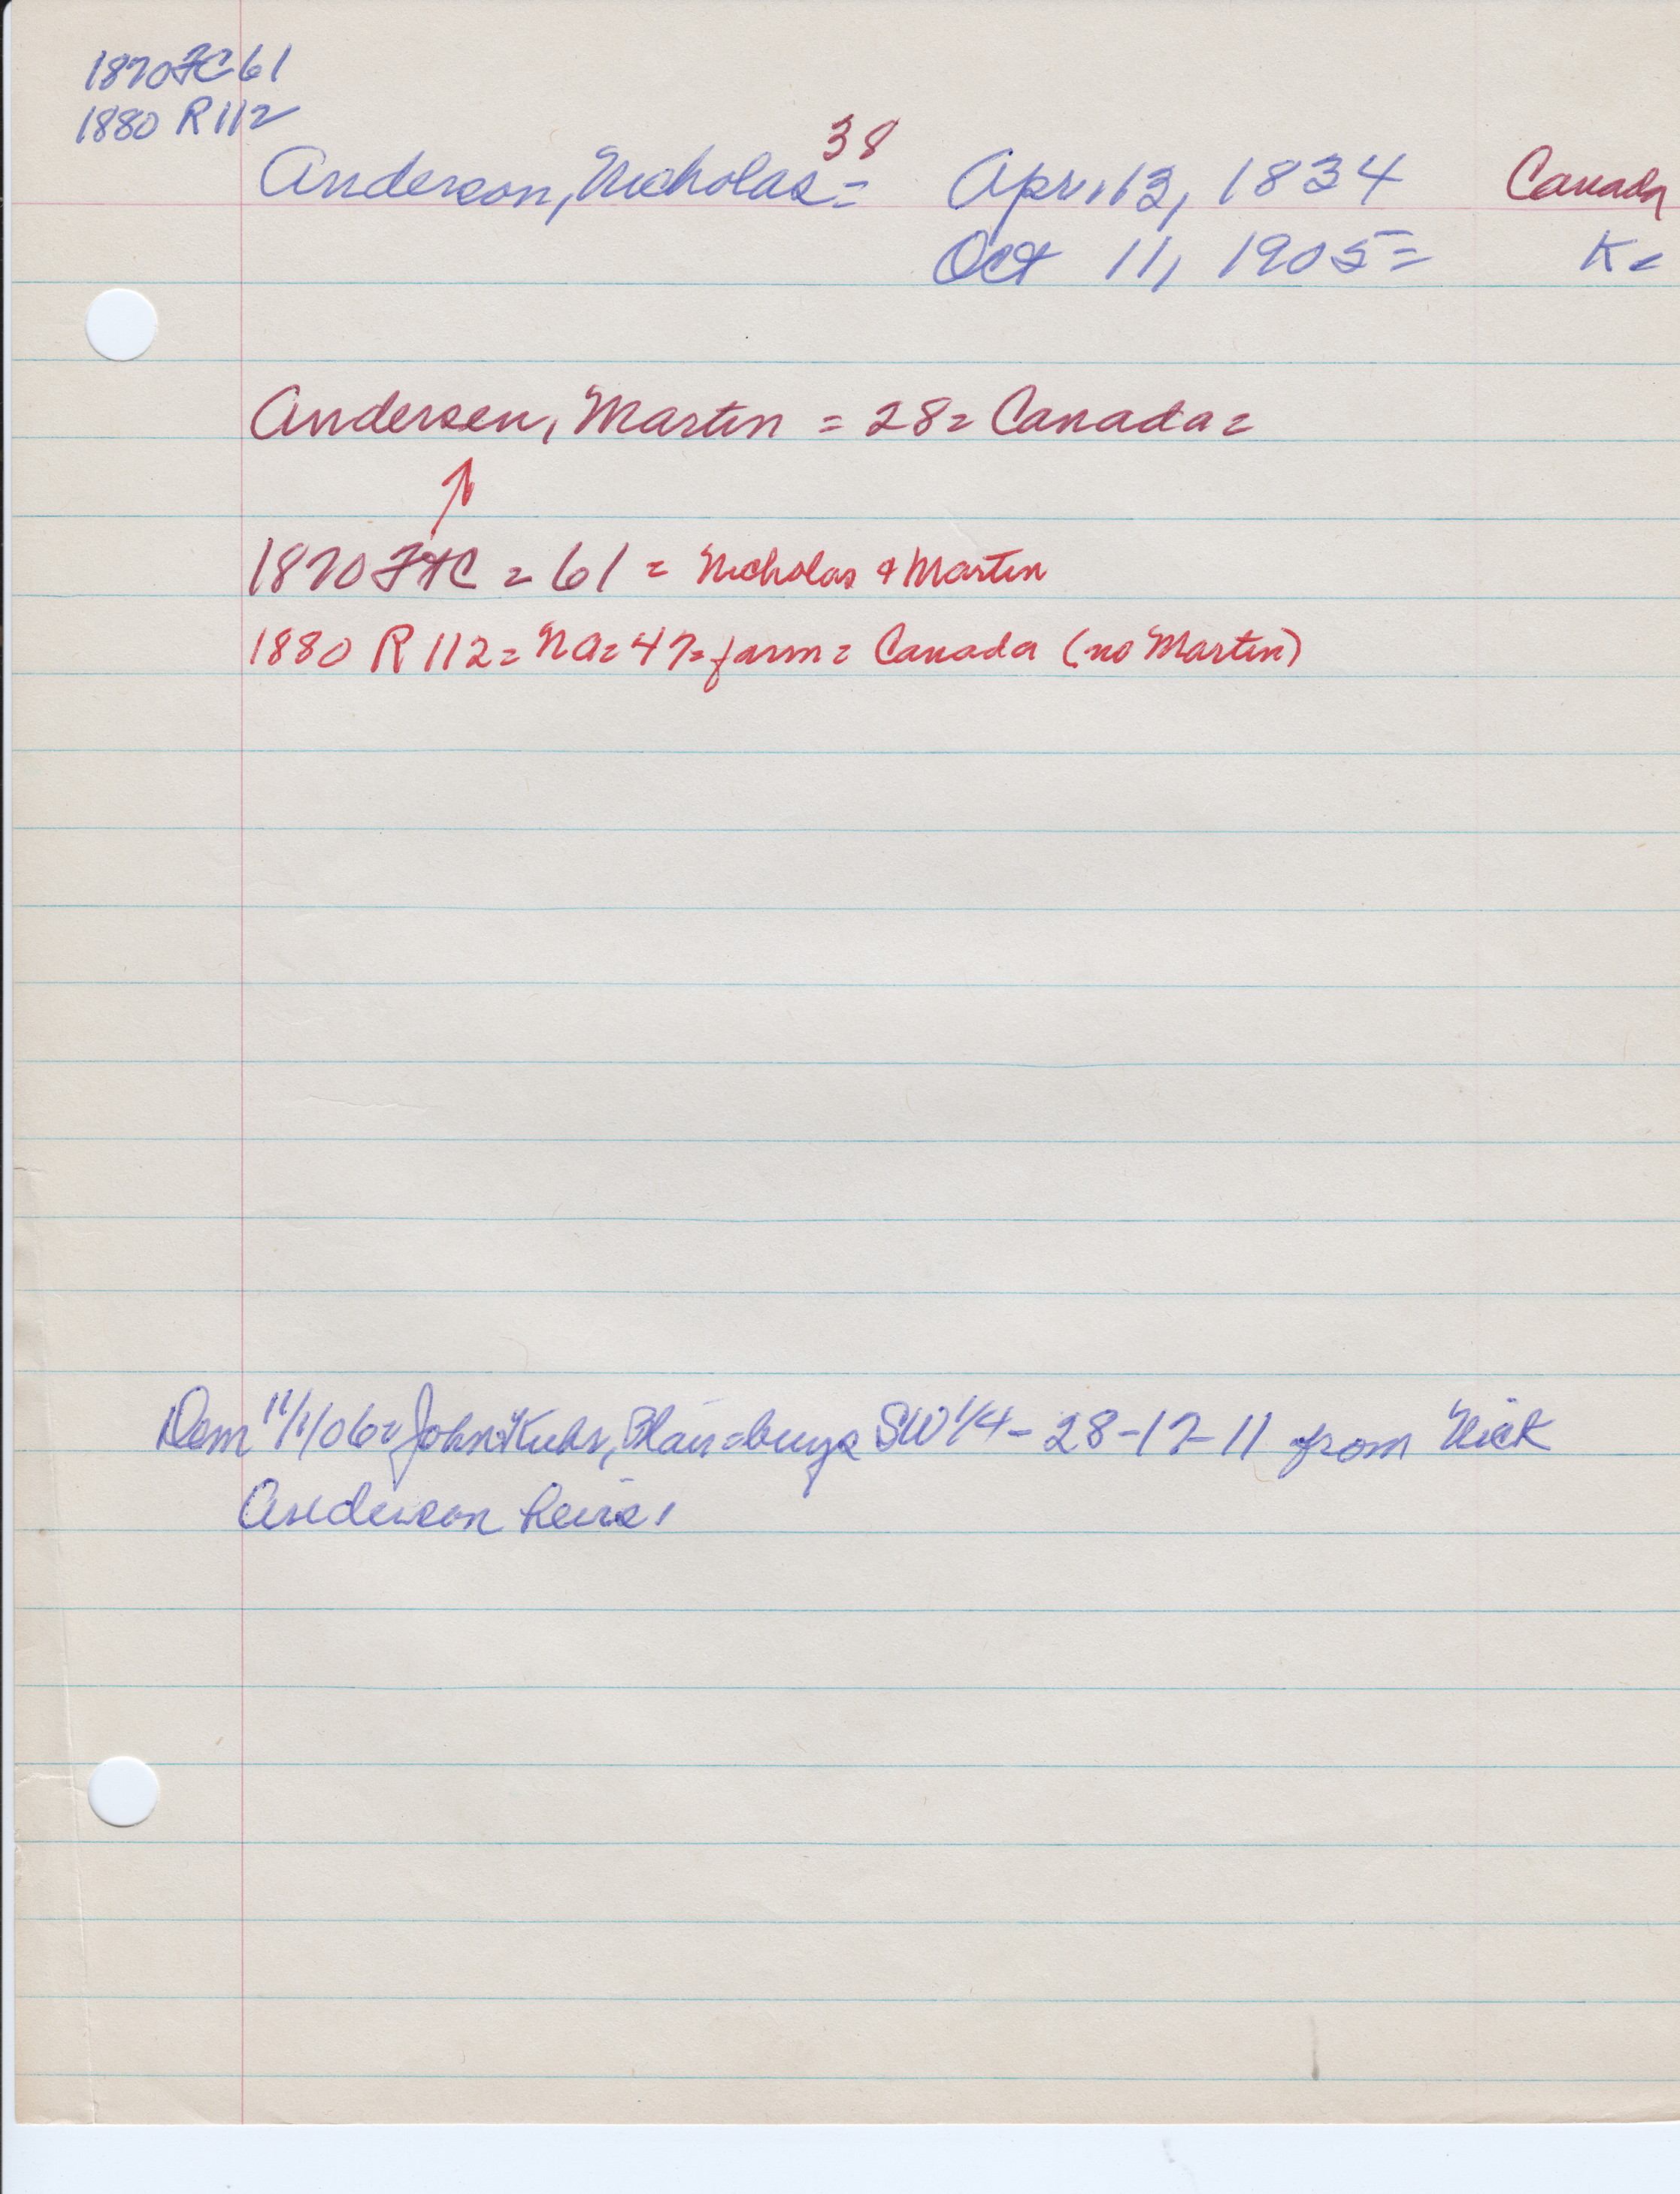 1870 FC 61
1880 R 112
38
Anderson, Nicholas = Apr. 13, 1834 Canada
Oct 11, 1905 =
Andersen, Martin = 28 = Canada =
1870 = 61 = Nicholas & Martin
1880 R 112 = NA = 47 = farm = Canada (no Martin)
Dem 11/1/06 = John Kuhr, Blair = buys SW 1/4 - 28-17-11 from Nick
Anderson heirs.